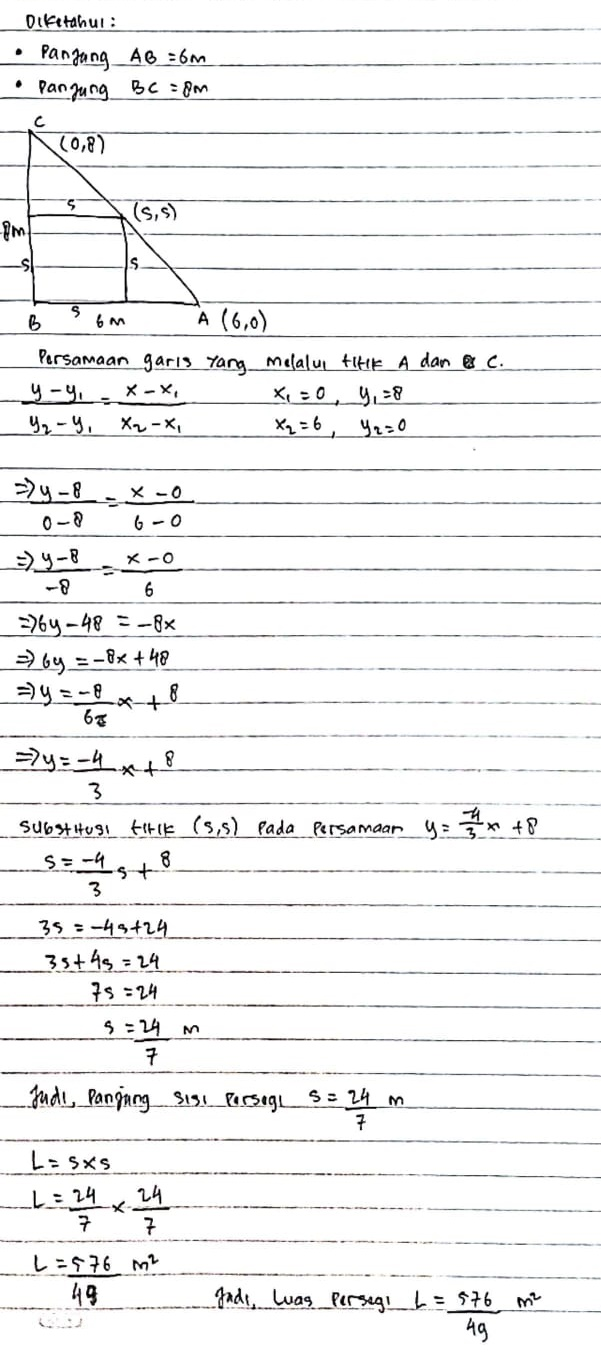 Diketahui :
• Panjang AB = 6m
• Panjang BC = 8m
C
(0,8)
s
(s,s)
8m
s
s
B
s
6m
A (6,0)
Persamaan garis yang melalui titik A dan C.
y - y₁ / y₂ - y₁ = x - x₁ / x₂ - x₁
x₁ = 0, y₁ = 8
x₂ = 6, y₂ = 0
⇒ y - 8 / 0 - 8 = x - 0 / 6 - 0
⇒ y - 8 / -8 = x - 0 / 6
⇒ 6y - 48 = -8x
⇒ 6y = -8x + 48
⇒ y = -8/6 x + 8
⇒ y = -4/3 x + 8
Substitusi titik (s,s) pada persamaan y = -4/3 x + 8
s = -4/3 s + 8
3s = -4s + 24
3s + 4s = 24
7s = 24
s = 24/7 m
Jadi, Panjang sisi persegi s = 24/7 m
L = s x s
L = 24/7 x 24/7
L = 576/49 m²
Jadi, Luas persegi L = 576/49 m²